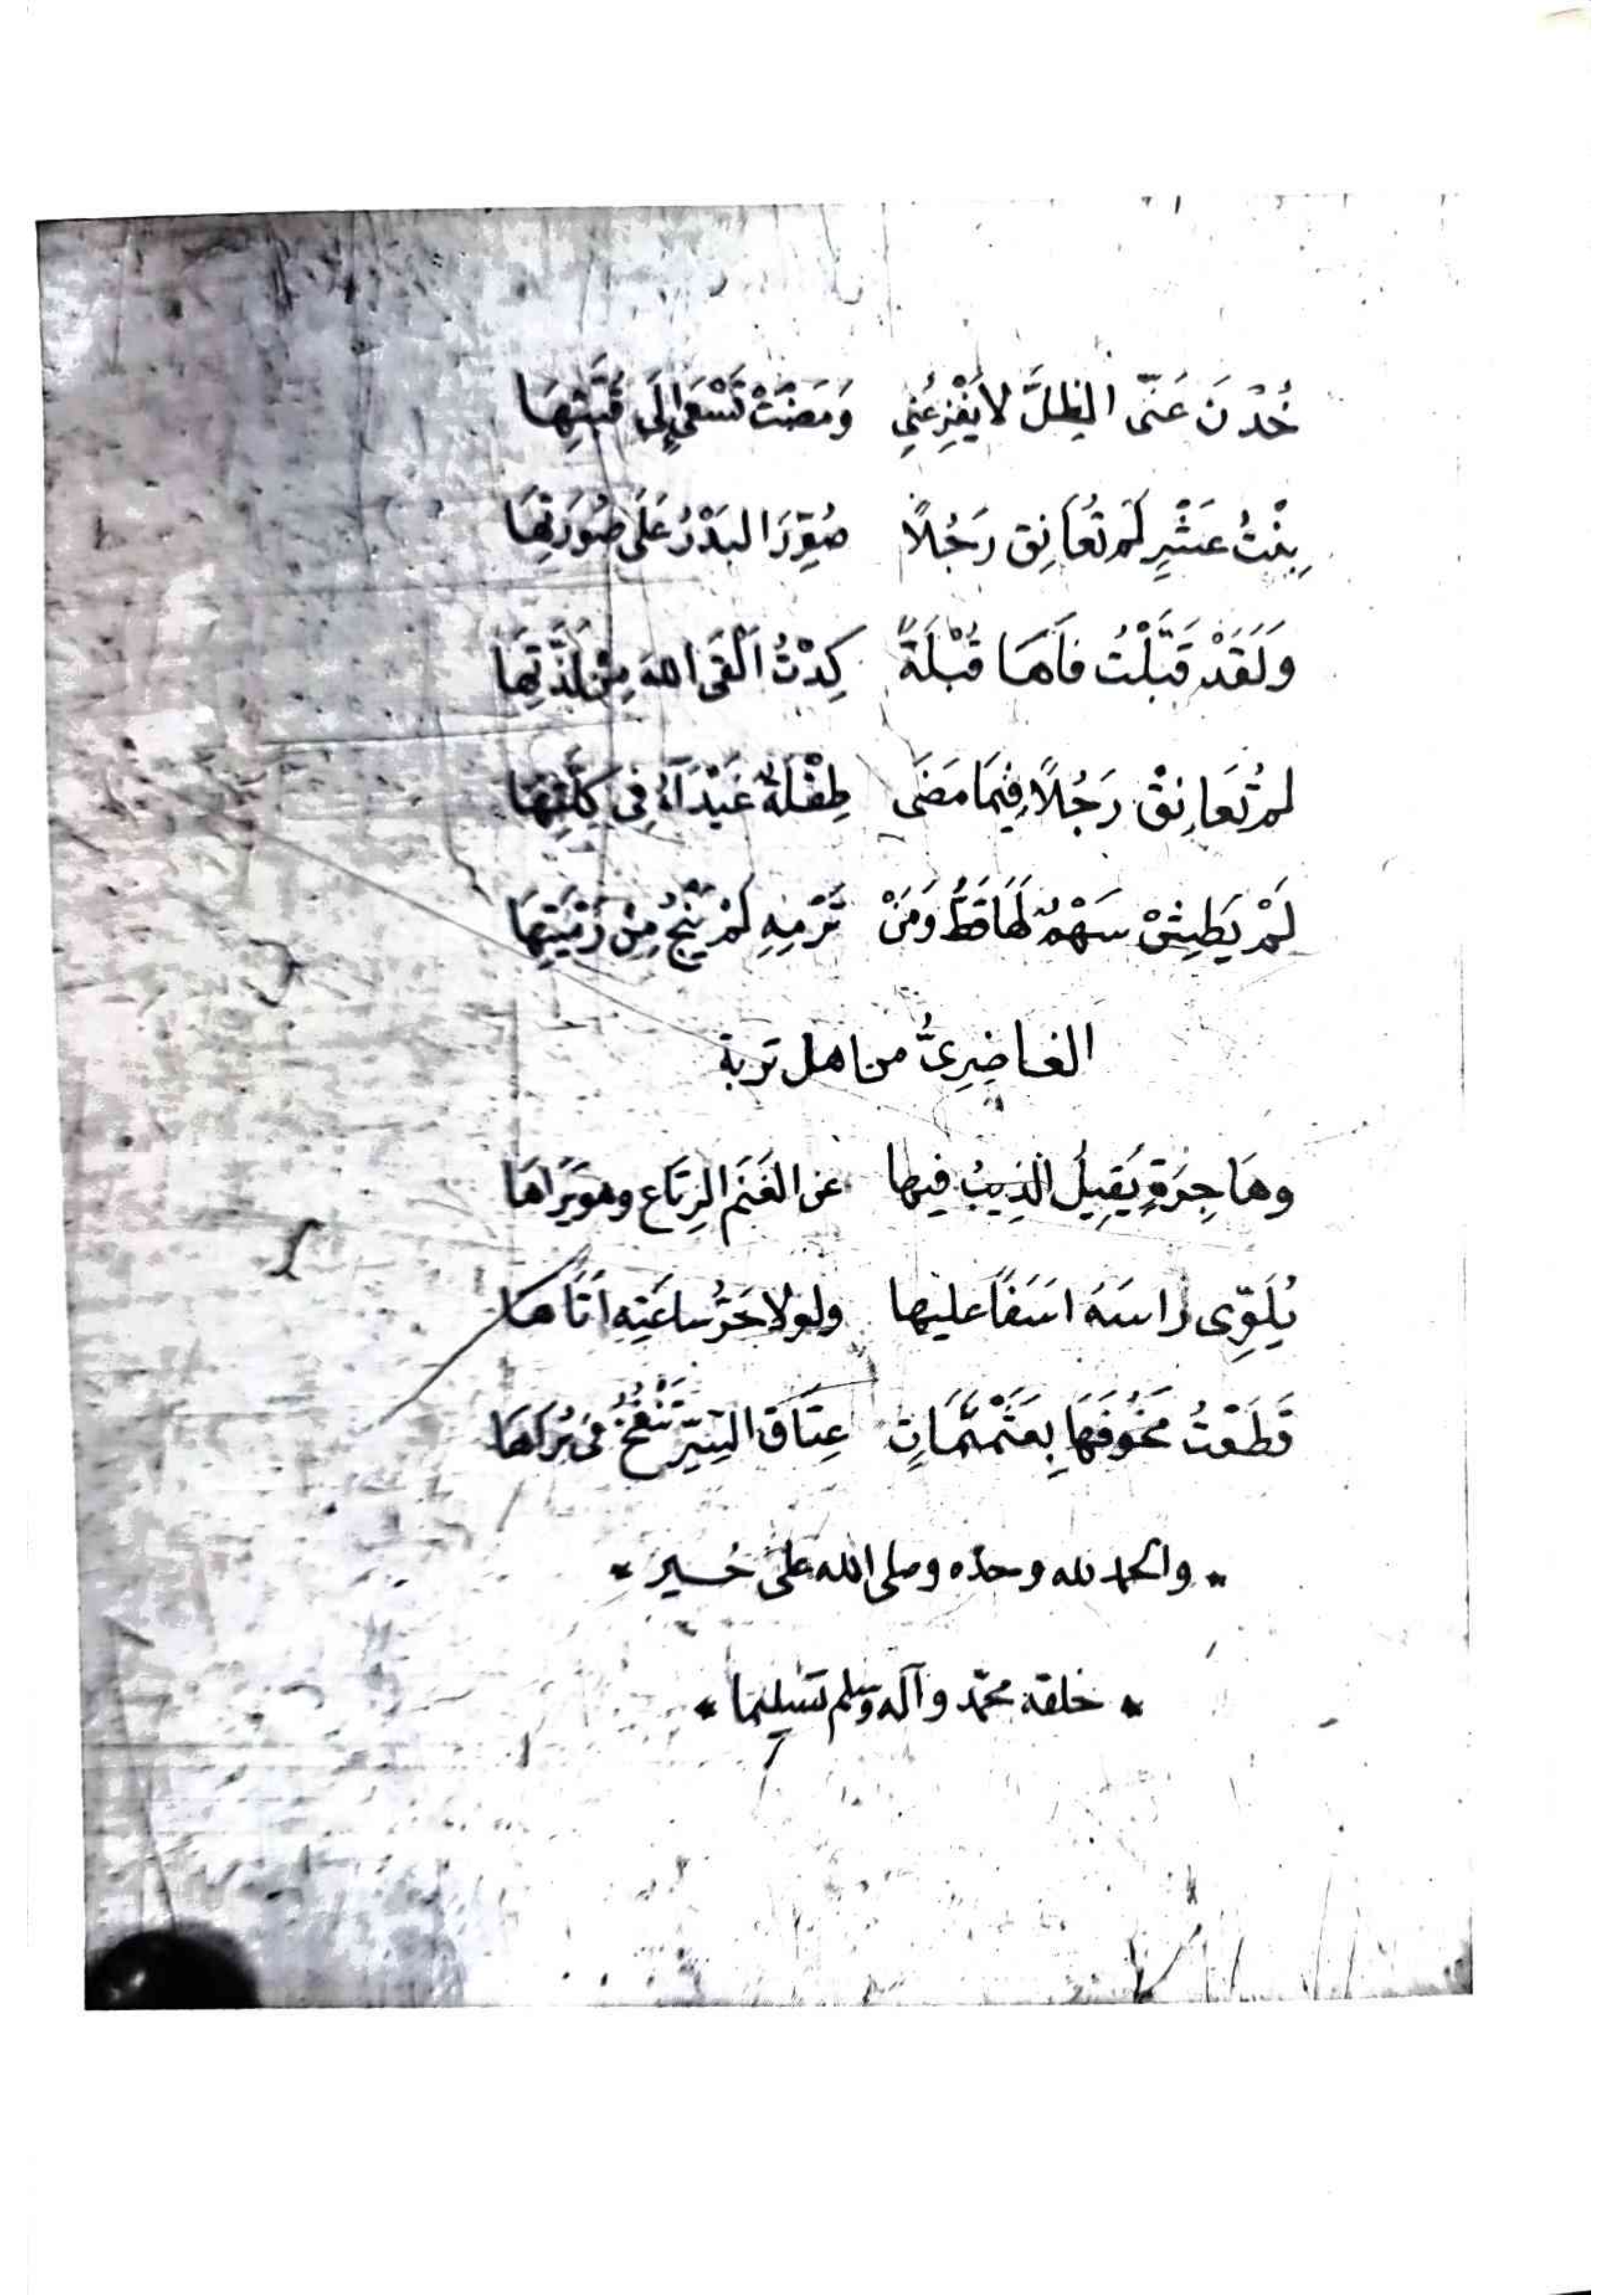 خُذْنَ عَنّى الظِلَّ لا يَفْزِعُنِي وَمَضَتْ تَسْعَى إِلَى قُبَّتِهَا
بِنْتُ عَشْرٍ لَم تُعَانِق رَجُلاً صُوِّرَ البَدْرُ عَلَى صُورَتِهَا
وَلَقَدْ قَبَّلْتُ فَاهَا قُبْلَةً كِدْتُ اَلْقَى اللهَ مِنْ لَذَّتِهَا
لم تُعَانِقْ رَجُلاً فِيمَا مَضَى طِفْلَةٌ غَيْدَآءُ فِى كِلَّتِهَا
لَمْ يَطِشْ سَهْمٌ لَهَا قَطُّ وَمَنْ تَرْمِهِ لَمْ يَنْجُ مِنْ رَمْيَتِهَا
الغاضِرِىُّ من اهل تربة
وهَاجِرَةٍ يَقِيلُ الذِيبُ فيها عن الغَنَمِ الرِتَاع وهو يَرَاهَا
يُلَوِّى رَاسَهُ اسَفًا عليها ولولا حَرُّ ساعَتِهِ اَتَاهَا
قَطَعْتُ مَخُوفَهَا بِعَثَمْثَمَاتٍ عِتَاق السَيْرِ تَنْفُخُ فى بُرَاهَا
* والحمد لله وحده وصلى الله على خير *
* خلقه محمّد وآله وسلم تسليما *